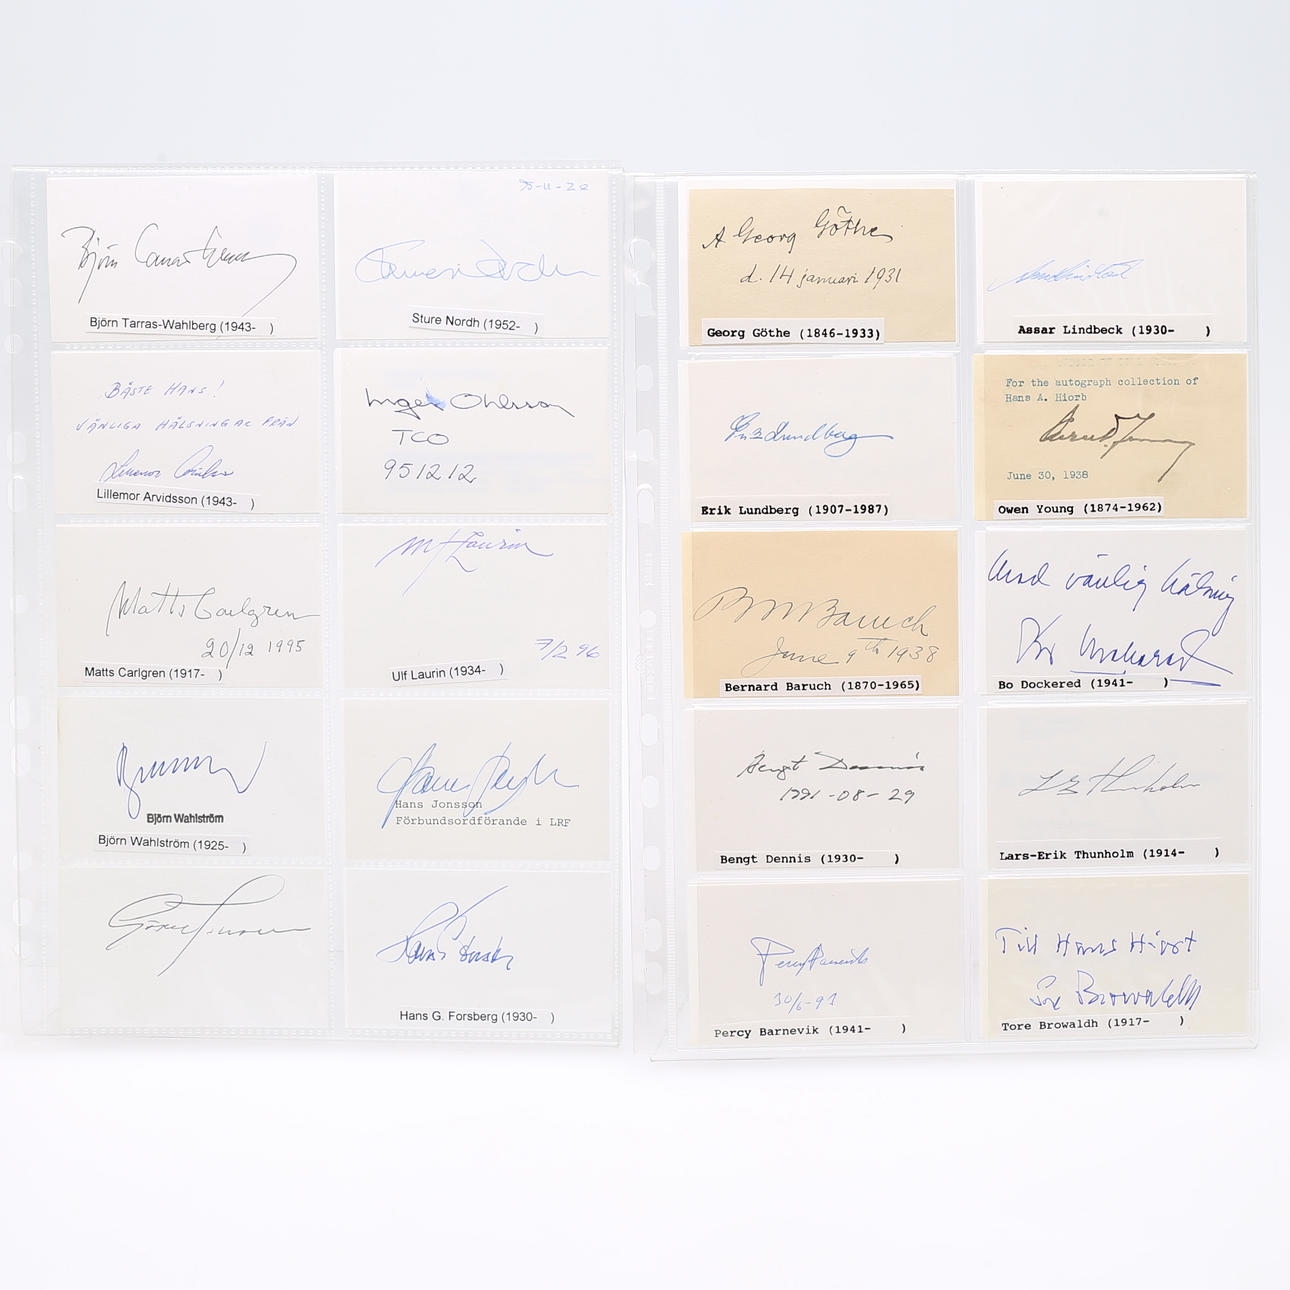 Björn
Björn Tarras-Wahlberg (1943- )
95-11-22
Sture Nordh (1952- )
BÄSTE HANS!
VÄNLIGA HÄLSNINGAR FRÅN
Lillemor Arvidsson (1943- )
Inger Ohlsson
TCO
951212
Matts Carlgren
20/12 1995
Matts Carlgren (1917- )
Laurin
7/2 96
Ulf Laurin (1934- )
Björn Wahlström
Björn Wahlström (1925- )
Hans Jonsson
Förbundsordförande i LRF
Hans G. Forsberg (1930- )
A Georg Göthe
d. 14 januari 1931
Georg Göthe (1846-1933)
Assar Lindbeck (1930- )
Erik Lundberg
Erik Lundberg (1907-1987)
For the autograph collection of
Hans A. Hiorb
June 30, 1938
Owen Young (1874-1962)
B M Baruch
June 9th 1938
Bernard Baruch (1870-1965)
Med vänlig hälsning
Bo Dockered (1941- )
Bengt Dennis
1991-08-29
Bengt Dennis (1930- )
L E Thunholm
Lars-Erik Thunholm (1914- )
Percy Barnevik
30/6-91
Percy Barnevik (1941- )
Till Hans Hiort
Tore Browaldh
Tore Browaldh (1917- )